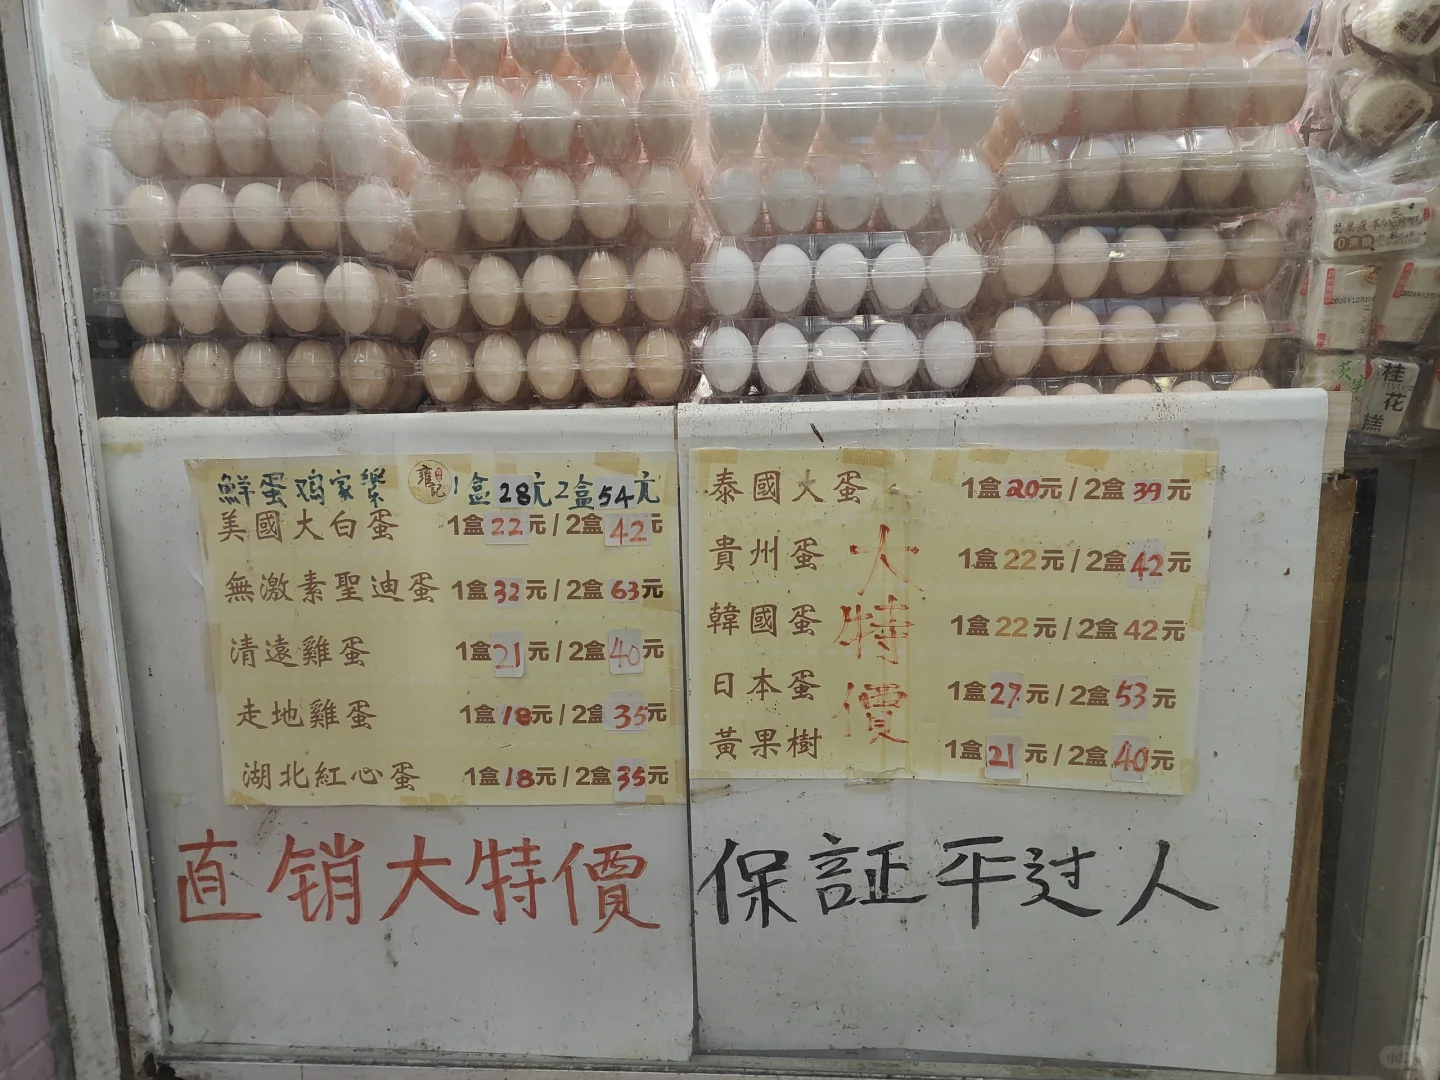 鮮蛋鸡家樂 雍記 1盒28元2盒54元
美國大白蛋 1盒22元/2盒42元
無激素聖迪蛋 1盒32元/2盒63元
清遠雞蛋 1盒21元/2盒40元
走地雞蛋 1盒18元/2盒35元
湖北紅心蛋 1盒18元/2盒35元
直销大特價
泰國大蛋 1盒20元/2盒39元
貴州蛋 1盒22元/2盒42元
韓國蛋 1盒22元/2盒42元
日本蛋 1盒27元/2盒53元
黃果樹 1盒21元/2盒40元
大特價
保証平过人
桂花糕